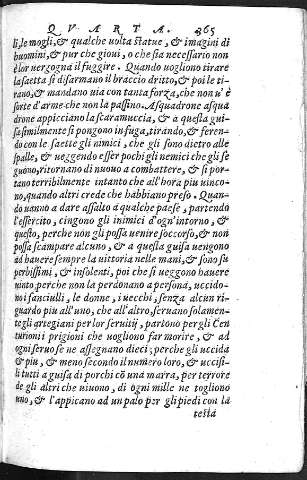 QVARTA. 365
li, le mogli, & qualche uolta statue, & imagini di
huomini, & pur che gioui, o che sia necessario non
è lor uergogna il fuggire. Quando uogliono tirare
la saetta si disarmano il braccio dritto, & poi le ti-
rano, & mandano uia con tanta forza, che non u'è
sorte d'arme che non la passino. A squadrone a squa
drone appicciano la scaramuccia, & a questa gui-
sa similmente si pongono in fuga, tirando, & feren-
do con le saette gli nimici, che gli sono dietro alle
spalle, & ueggendo esser pochi gli nemici che gli se
guono, ritornano di nuouo a combattere, & si por-
tano terribilmente intanto che all'hora piu uinco-
no, quando altri crede che habbiano preso. Quan-
do uanno a dare assalto a qualche paese, partendo
l'essercito, cingono gli inimici d'ogn'intorno, &
questo, perche non gli possa uenire soccorso, & non
possa scampare alcuno, & a questa guisa uengono
ad hauere sempre la uittoria nelle mani, & sono su
perbissimi, & insolenti, poi che si ueggono hauere
uinto, perche non la perdonano a persona, uccido-
no i fanciulli, le donne, i uecchi, senza alcun ri-
guardo piu all'uno, che all'altro, seruano solamen-
te gli artegiani per lor seruitij, partono per gli Cen
turioni i prigioni che uogliono far morire, & ad
ogni seruo se ne assegnano dieci; perche gli uccida
& piu, & meno secondo il numero loro, & uccisi-
li tutti a guisa di porchi cō una marra, per terrore
de gli altri che uiuono, di ogni mille ne togliono
uno, & l'appicano ad un palo per gli piedi con la
testa